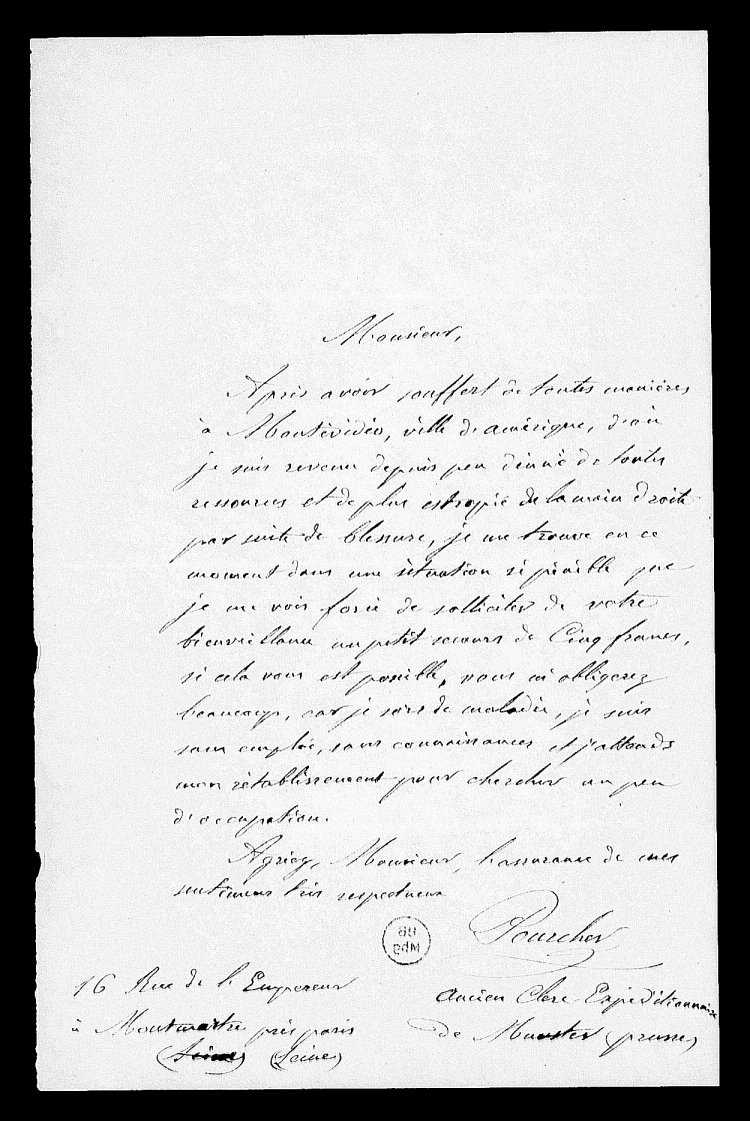 Monsieur,
Après avoir souffert de toutes manières
à Montévidéo, ville d'amérique, d'où
je suis revenu depuis peu dénué de toutes
ressources et de plus estropié de la main droite
par suite de blessure, je me trouve en ce
moment dans une situation si pénible que
je me vois forcé de solliciter de votre
bienveillance un petit secours de Cinq francs,
si cela vous est possible, vous m'obligerez
beaucoup, car je sors de maladie, je suis
sans emploi, sans connaissances et j'attends
mon rétablissement pour chercher un peu
d'occupation.
Agréez, Monsieur, l'assurance de mes
sentimens très respectueux
Pourcher
16 Rue de l'Empereur
à Montmartre près paris
(Seine) (Seine)
ancien Clerc Expéditionnaire
de Munster (prusse)